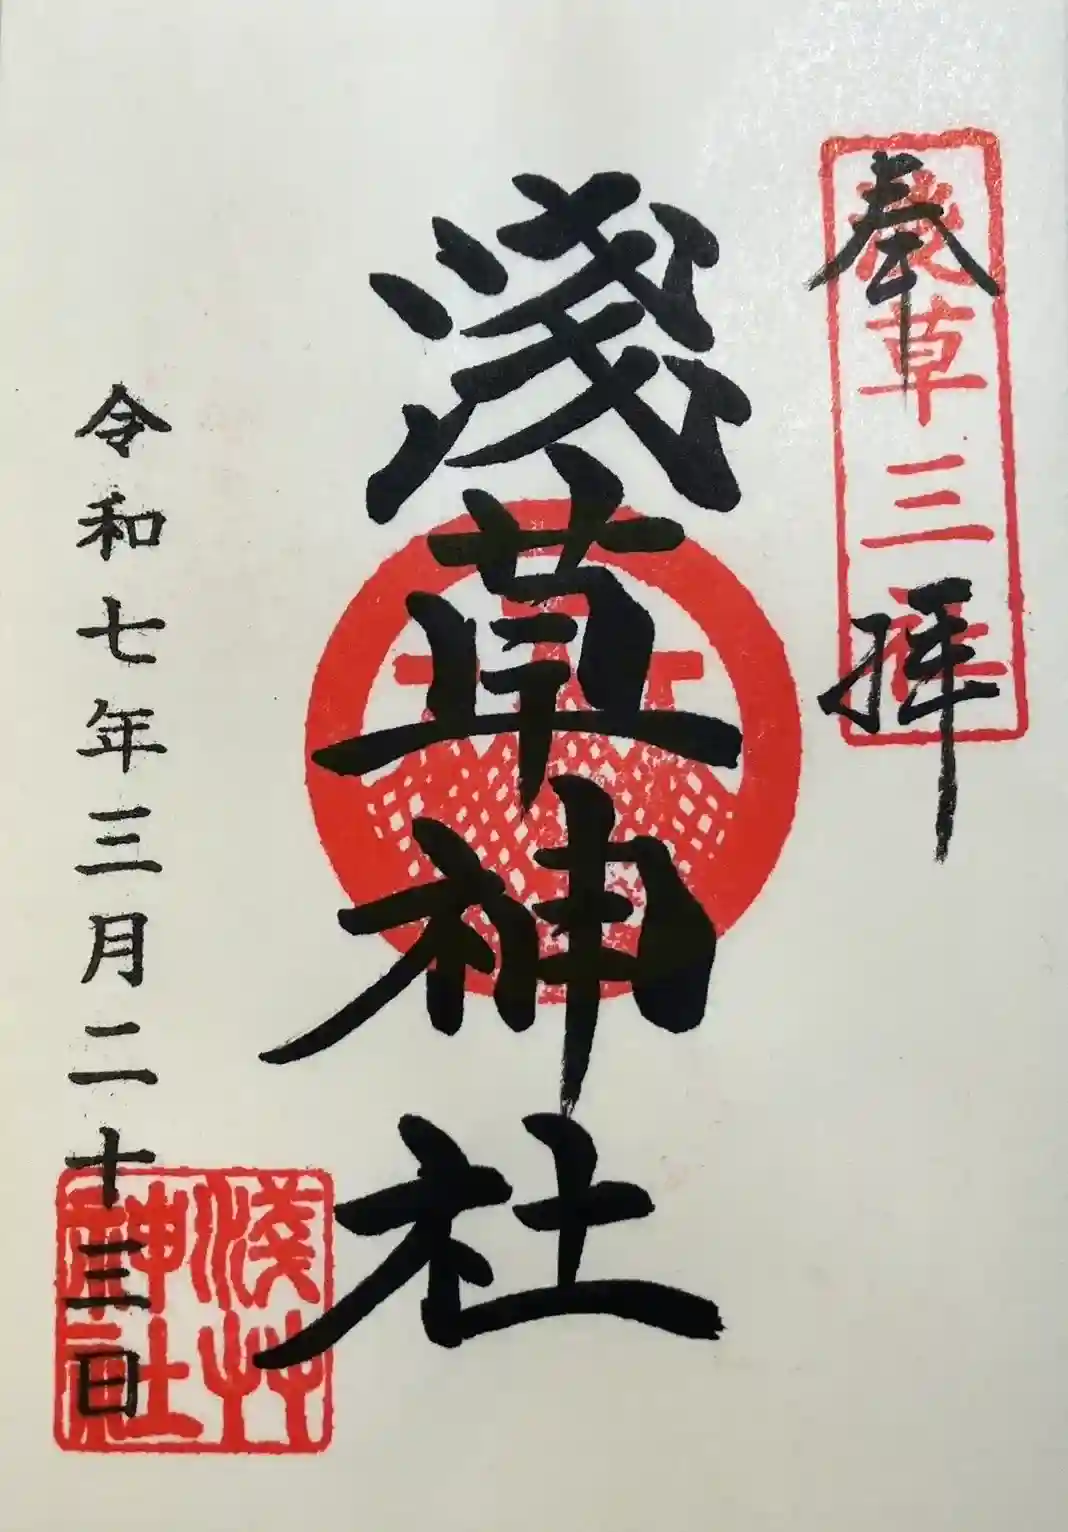 奉拝
淺草三社
淺草神社
令和七年三月二十三日
淺艸神社